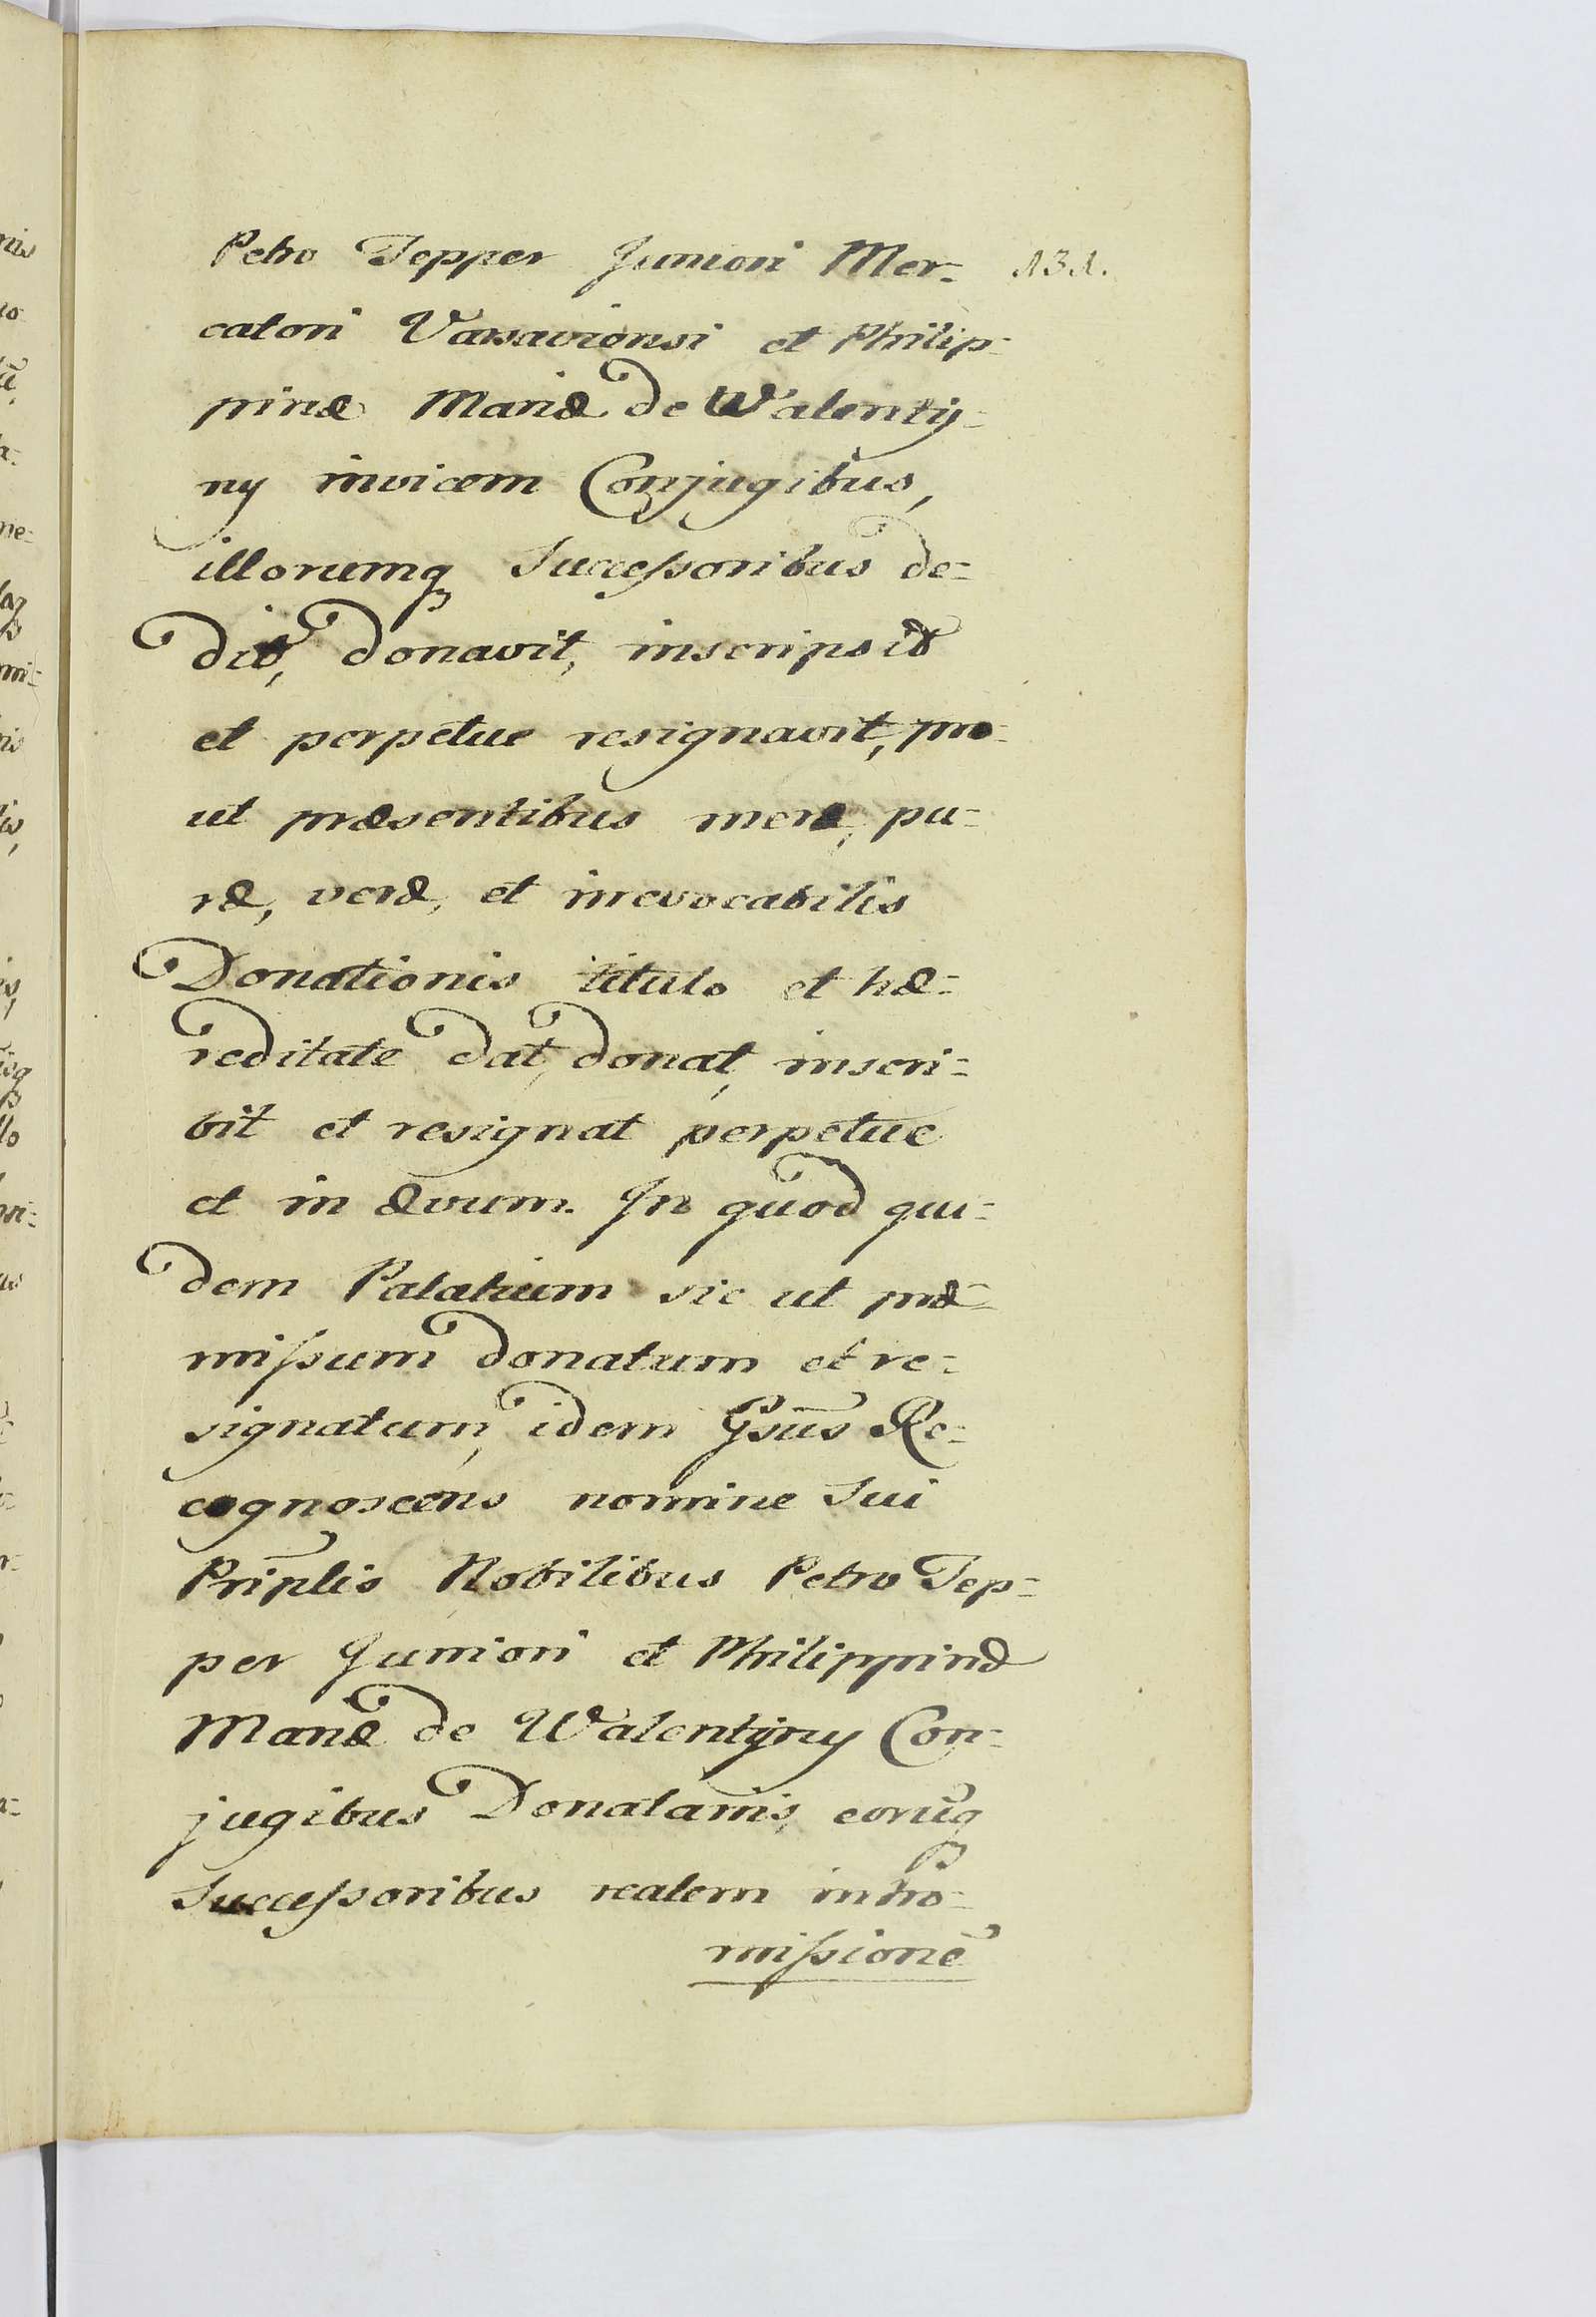 Petro Tepper Juniori Mer= 131.
catori Varsaviensi et Philip=
pinæ Mariæ de Walenty=
ny invicem Conjugibus,
illorumq₃ Successoribus de=
dit, donavit, inscripsit
et perpetue resignavit, pro=
ut præsentibus meræ, pu=
ræ, veræ, et irrevocabilis
Donationis titulo et hæ=
reditate dat, donat, inscri=
bit et resignat perpetue
et in ævum. In quod qui=
dem Palatium sic ut præ=
missum donatum et re=
signatum, idem Gsūs Re=
cognoscens nomine sui
Prip̄lis Nobilibus Petro Tep=
per Juniori et Philippinæ
Mariæ de Walentyny Con=
jugibus Donatariis, eorūq₃
Successoribus realem intro=
missionē